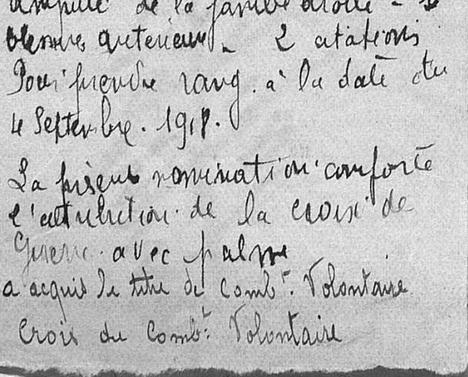 amputé de la jambe droite - 
blessure antérieure - 2 citations
Pour prendre rang à la date du
4 Septembre. 1918.
La présente nomination comporte
l'attribution de la croix de
Guerre avec palme
a acquis le titre de Combt. Volontaire
Croix du Combt. Volontaire